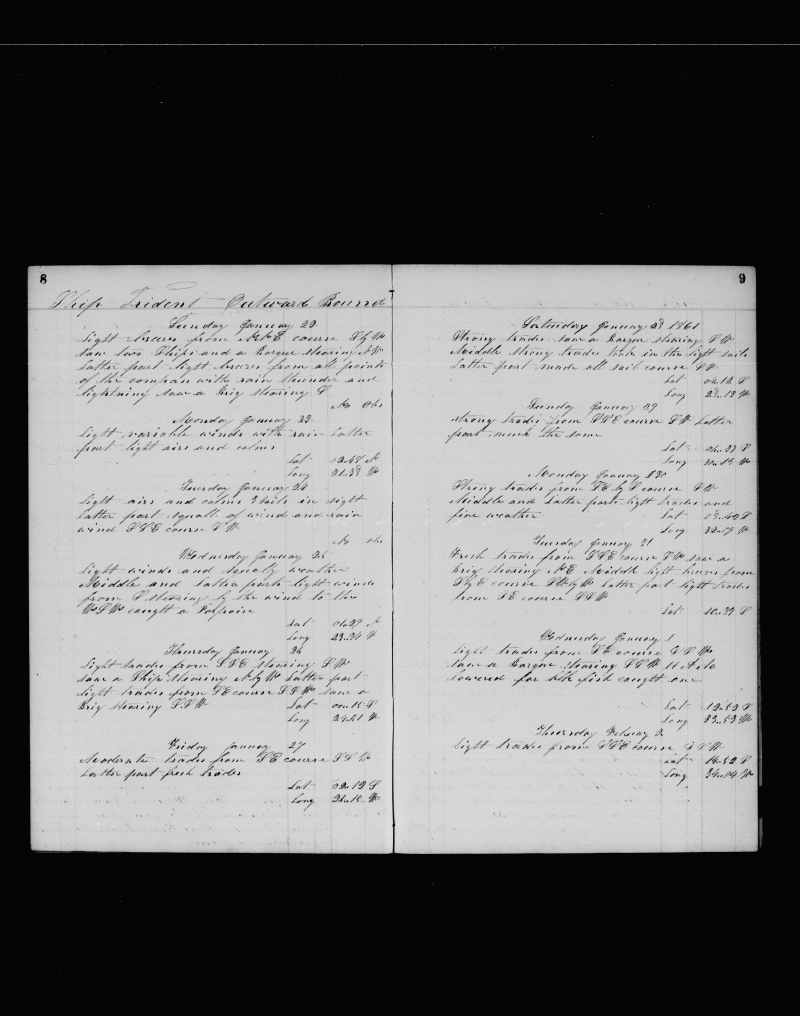 8
Ship Trident Outward Bound
Sunday January 22
Light breezes from course S by W
Saw two Ships and a Barque steering N W
Latter part light breezes from all points
of the compass with rain thunder and
lightning Saw a Brig steering S
No Obs
Monday January 23
Light variable winds with rain Latter
part light airs and calms
Lat N
Long W
Tuesday January 24
Light airs and calms sails in sight
Latter part squalls of wind and rain
wind S S E course S W
No Obs
Wednesday January 25
Light winds and squaly weather
Middle and latter parts light winds
from S steering by the wind to the
W S W caught a Porpoise
Lat 01..29 N
Long 23..34 W
Thursday January 26
Light trades from S S E steering S W
Saw a Ship steering N by W Latter part
light trades from S E course S S W Saw a
Brig steering S S W
Lat S
Long W
Friday January 27
Moderate trades from S E course S S W
Latter part fresh trades
Lat 02..12 S
Long W
9
Saturday January 28 1861
Strong trades saw a Barque steering S W
Middle strong trades took in the light sails
Latter part made all sail course S W
Lat 04..12 S
Long W
Sunday January 29
Strong trades from S S E course S W Latter
part much the same
Lat S
Long W
Monday January 30
Strong trades from S E by S course S W
Middle and Latter parts light trades and
fine weather
Lat S
Long W
Tuesday January 31
Fresh trades from S S E course S W saw a
Brig steering N E Middle light breezes from
S by E course S W by W Latter part light trades
from S E course S S W
Lat 10..39 S
Wednesday January 1
Light trades from S E course S S W
Saw a Barque steering S S W
lowered for fish caught one
Lat 12..52 S
Long 33..53 W
Thursday February 2
Light trades from S S E course S S W
Lat 14..52 S
Long 34..04 W